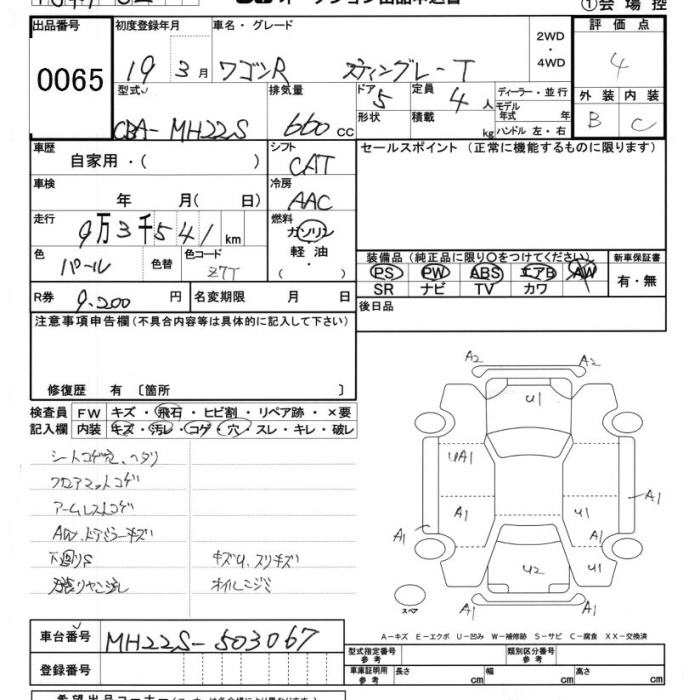 ①会場控
出品番号
0065
初度登録年月
19 3月
車名・グレード
ワゴンR スティングレーT
2WD
・
4WD
評価点
4
外装 内装
B C
型式
CBA-MH22S
排気量
660 cc
ドア
5
定員
4 人
形状
積載
kg
ディーラー・並行
モデル
年式 年
ハンドル 左・右
車歴
自家用・( )
シフト
CAT
セールスポイント(正常に機能するものに限ります)
車検
年 月( 日)
冷房
AAC
走行
9万3千541km
燃料
ガソリン
軽油
・
( )
色
パール
色替
色コード
Z7T
装備品(純正品に限り○をつけてください)
PS PW ABS エアB AW
SR ナビ TV カワ
新車保証書
有・無
R券
9.200円
名変期限 月 日
後日品
注意事項申告欄(不具合内容等は具体的に記入して下さい)
修復歴 有〔箇所 〕
検査員
記入欄
FW キズ・飛石・ヒビ割・リペア跡・×要
内装 キズ・汚レ・コゲ・穴・スレ・キレ・破レ
シートコゲ穴、ヘタリ
フロアマットコゲ
アームレストコゲ
AW、ドアミラーキズ
下廻りS キズU、スリキズ
オイルニジミ
A2 A2
U1
UA1
A1
A1 A1 U1 A1
U2 U1
A1 A1
スペア
A-キズ E-エクボ U-凹み W-補修跡 S-サビ C-腐食 XX-交換済
車台番号
MH22S-503067
登録番号
型式指定番号
参考
類別区分番号
参考
車庫証明用
参考
長さ cm 幅 cm 高さ cm